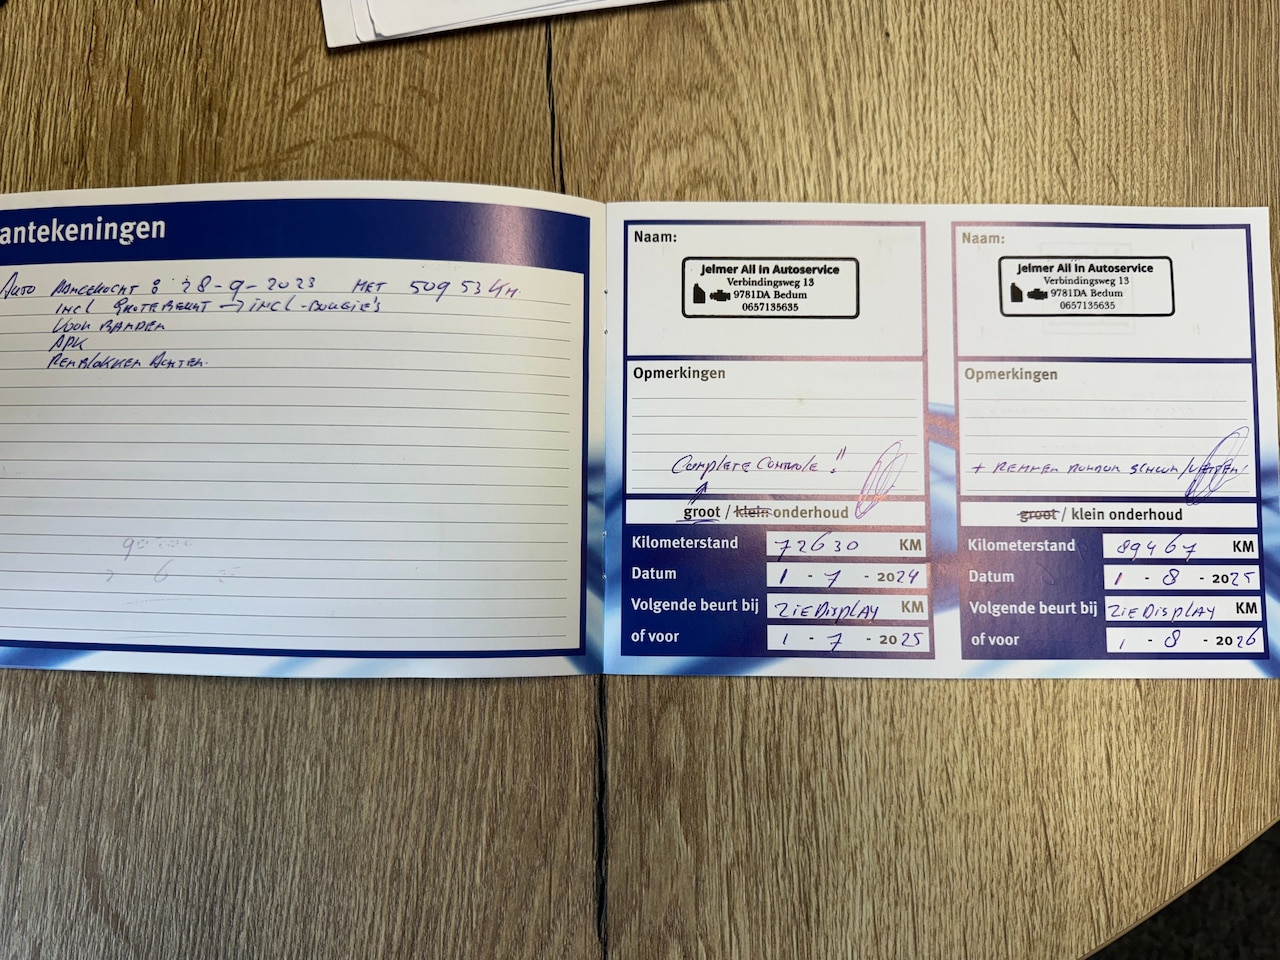 antekeningen
Auto Aangekocht : 28-9-2023 MET 50953 km.
incl Grote Beurt → incl-Bougie's
Voor Banden
APK
Remblokken Achter.
Naam:
Jelmer All in Autoservice
Verbindingsweg 13
9781DA Bedum
0657135635
Opmerkingen
Complete Controle !!
groot / klein onderhoud
Kilometerstand 72630 KM
Datum 1 - 7 - 2024
Volgende beurt bij ZIE Display KM
of voor 1 - 7 - 2025
Naam:
Jelmer All in Autoservice
Verbindingsweg 13
9781DA Bedum
0657135635
Opmerkingen
+ Remmen rondom schoon/vetten!
groot / klein onderhoud
Kilometerstand 89467 KM
Datum 1 - 8 - 2025
Volgende beurt bij ZIE Display KM
of voor 1 - 8 - 2026